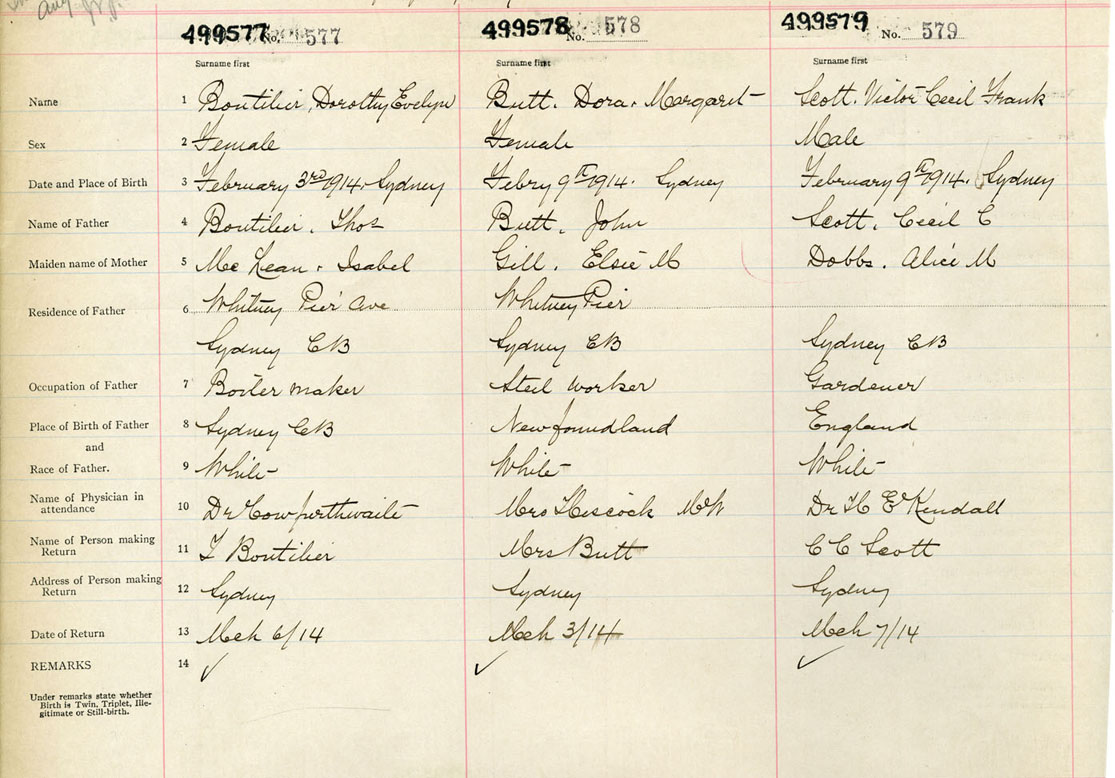 499577 No. 577 499578 No. 578 499579 No. 579
Surname first Surname first Surname first
Name 1 Boutilier, Dorothy Evelyn Butt. Dora. Margaret Scott. Victor Cecil Frank
Sex 2 Female Female Male
Date and Place of Birth 3 February 3rd 1914. Sydney Febry 9th 1914. Sydney February 9th 1914. Sydney
Name of Father 4 Boutilier. Thos Butt. John Scott. Cecil C
Maiden name of Mother 5 McLean. Isabel Gill. Elsie M Dobbs. Alice M
Residence of Father 6 Whitney Pier Ave Whitney Pier
Sydney CB Sydney CB Sydney CB
Occupation of Father 7 Boiler maker Steel worker Gardener
Place of Birth of Father 8 Sydney CB Newfoundland England
and
Race of Father. 9 White White White
Name of Physician in
attendance 10 Dr Cowperthwaite Mrs Hiscock MW Dr H E Kendall
Name of Person making
Return 11 T Boutilier Mrs Butt C C Scott
Address of Person making
Return 12 Sydney Sydney Sydney
Date of Return 13 Mch 6/14 Mch 3/14 Mch 7/14
REMARKS 14 ✓ ✓ ✓
Under remarks state whether
Birth is Twin, Triplet, Ille-
gitimate or Still-birth.